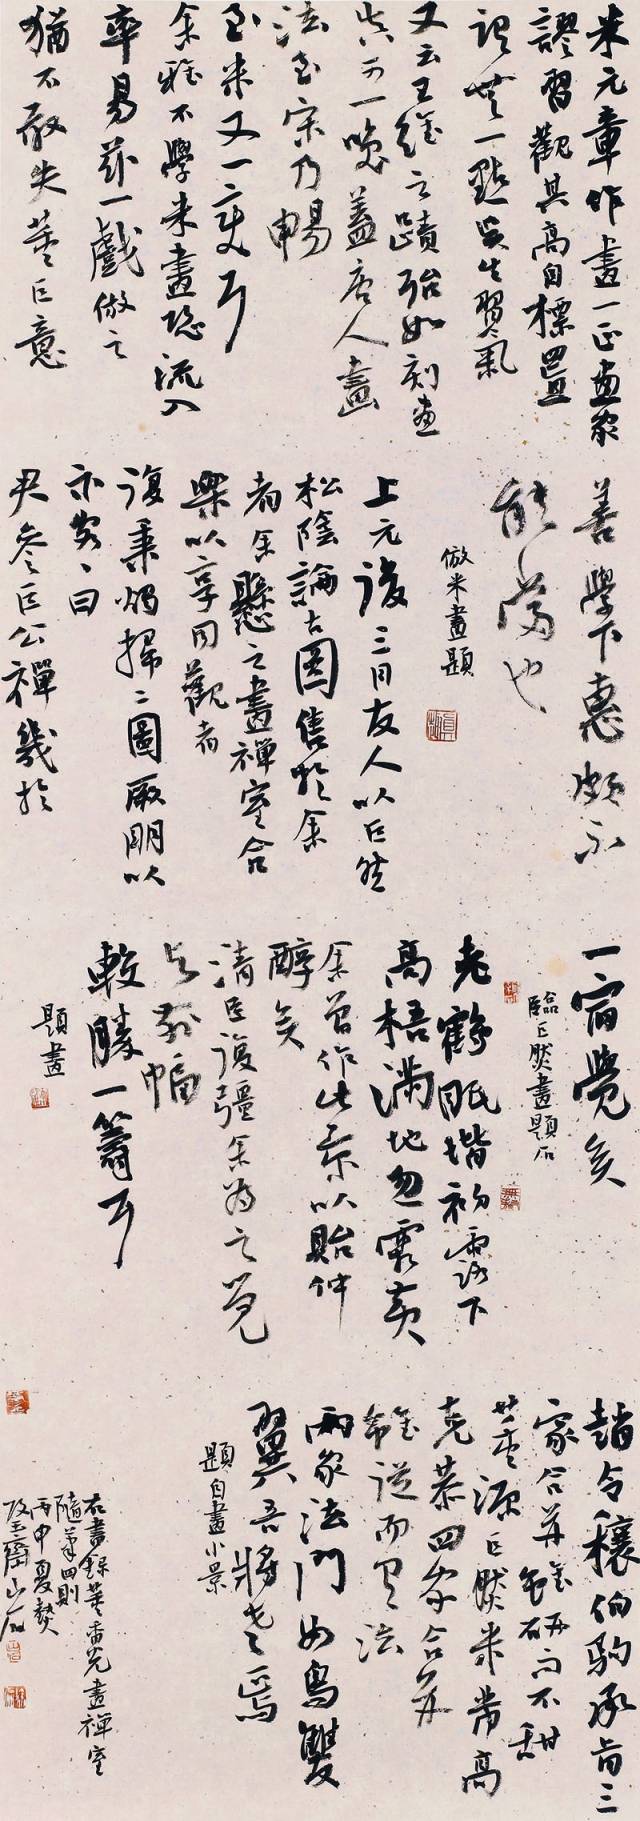 米元章作畫一正畫家
謬習觀其高自標置
謂無一點吳生習氣
又云王維之蹟殆如刻畫
真可一噱蓋唐人畫
法至宋乃暢
至米又一變耳
余雅不學米畫恐流入
率易茲一戲倣之
猶不敢失董巨意
善學下惠頗不
能當也
倣米畫題
上元後三日友人以巨然
松陰論古圖售於余
者余懸之畫禪室合
樂以享同觀者
復秉燭掃二圖厥明以
示客客曰
君參巨公禪幾於
一宿覺矣
臨巨然畫題後
老鶴眠堦初露下
高梧滿地忽霜黃
余曾作此景以貽仲
醇矣
清臣復彊余為之覺
與前幅
較勝一籌耳
題畫
趙令穰伯駒承旨三
家合并雖妍而不甜
董源巨然米芾高
克恭四家合并
雖縱而有法
兩家法門如鳥雙
翼吾將老焉
題自畫小景
右書錄董香光畫禪室
隨筆四則
丙申夏